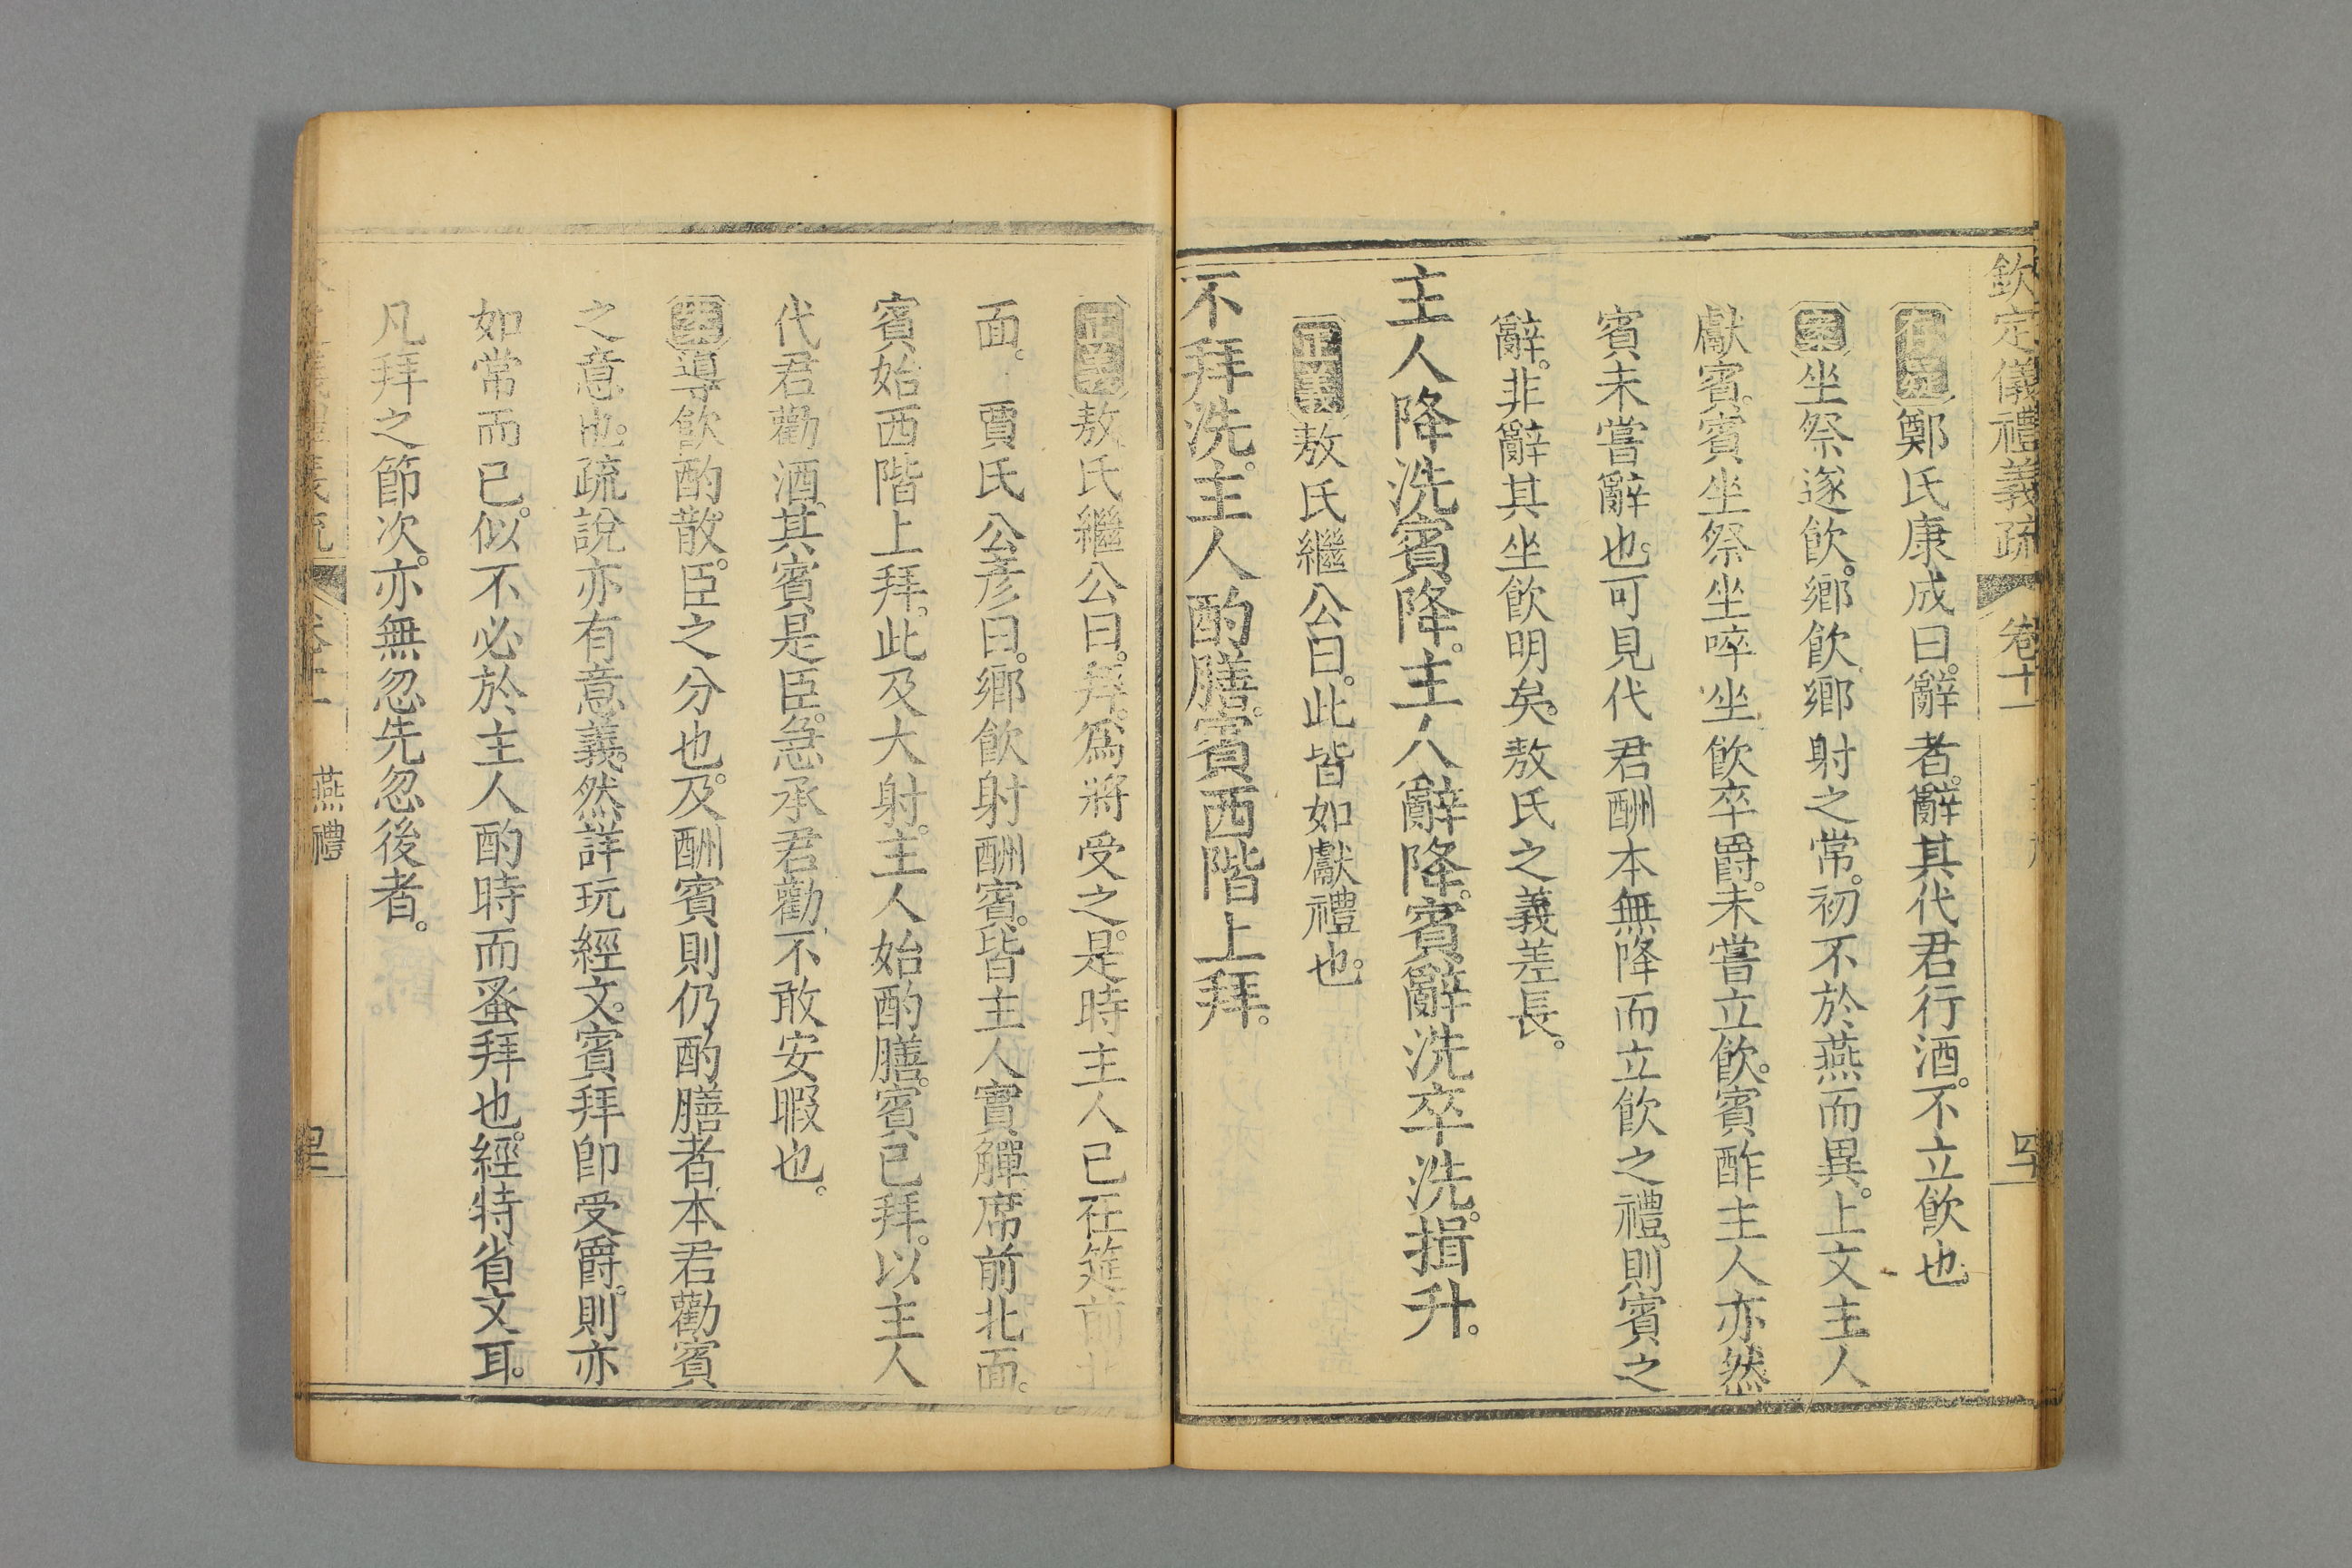 欽定儀禮義疏 卷十一
存疑鄭氏康成曰。辭者。辭其代君行酒。不立飲也
案坐祭遂飲。鄉飲鄉射之常。初不於燕而異。上文主人
獻賓。賓坐祭坐啐坐飲卒爵。未嘗立飲。賓酢主人亦然
賓未嘗辭也。可見代君酬本無降而立飲之禮。則賓之
辭。非辭其坐飲明矣。敖氏之義差長。
主人降洗賓降。主人辭降。賓辭洗卒洗。揖升。
正義敖氏繼公曰。此皆如獻禮也。
不拜洗。主人酌膳。賓西階上拜。
正義敖氏繼公曰。拜。為將受之。是時主人已在筵前北
面。賈氏公彥曰。鄉飲射酬賓。皆主人實觶席前北面。
賓始西階上拜。此及大射。主人始酌膳。賓已拜。以主人
代君勸酒。其賓是臣。急承君勸不敢安暇也。
案導飲酌散。臣之分也。及酬賓則仍酌膳者本君勸賓
之意也。疏說亦有意義。然詳玩經文。賓拜卽受爵。則亦
如常而已。似不必於主人酌時而蚤拜也。經特省文耳。
凡拜之節次。亦無忽先忽後者。
燕禮